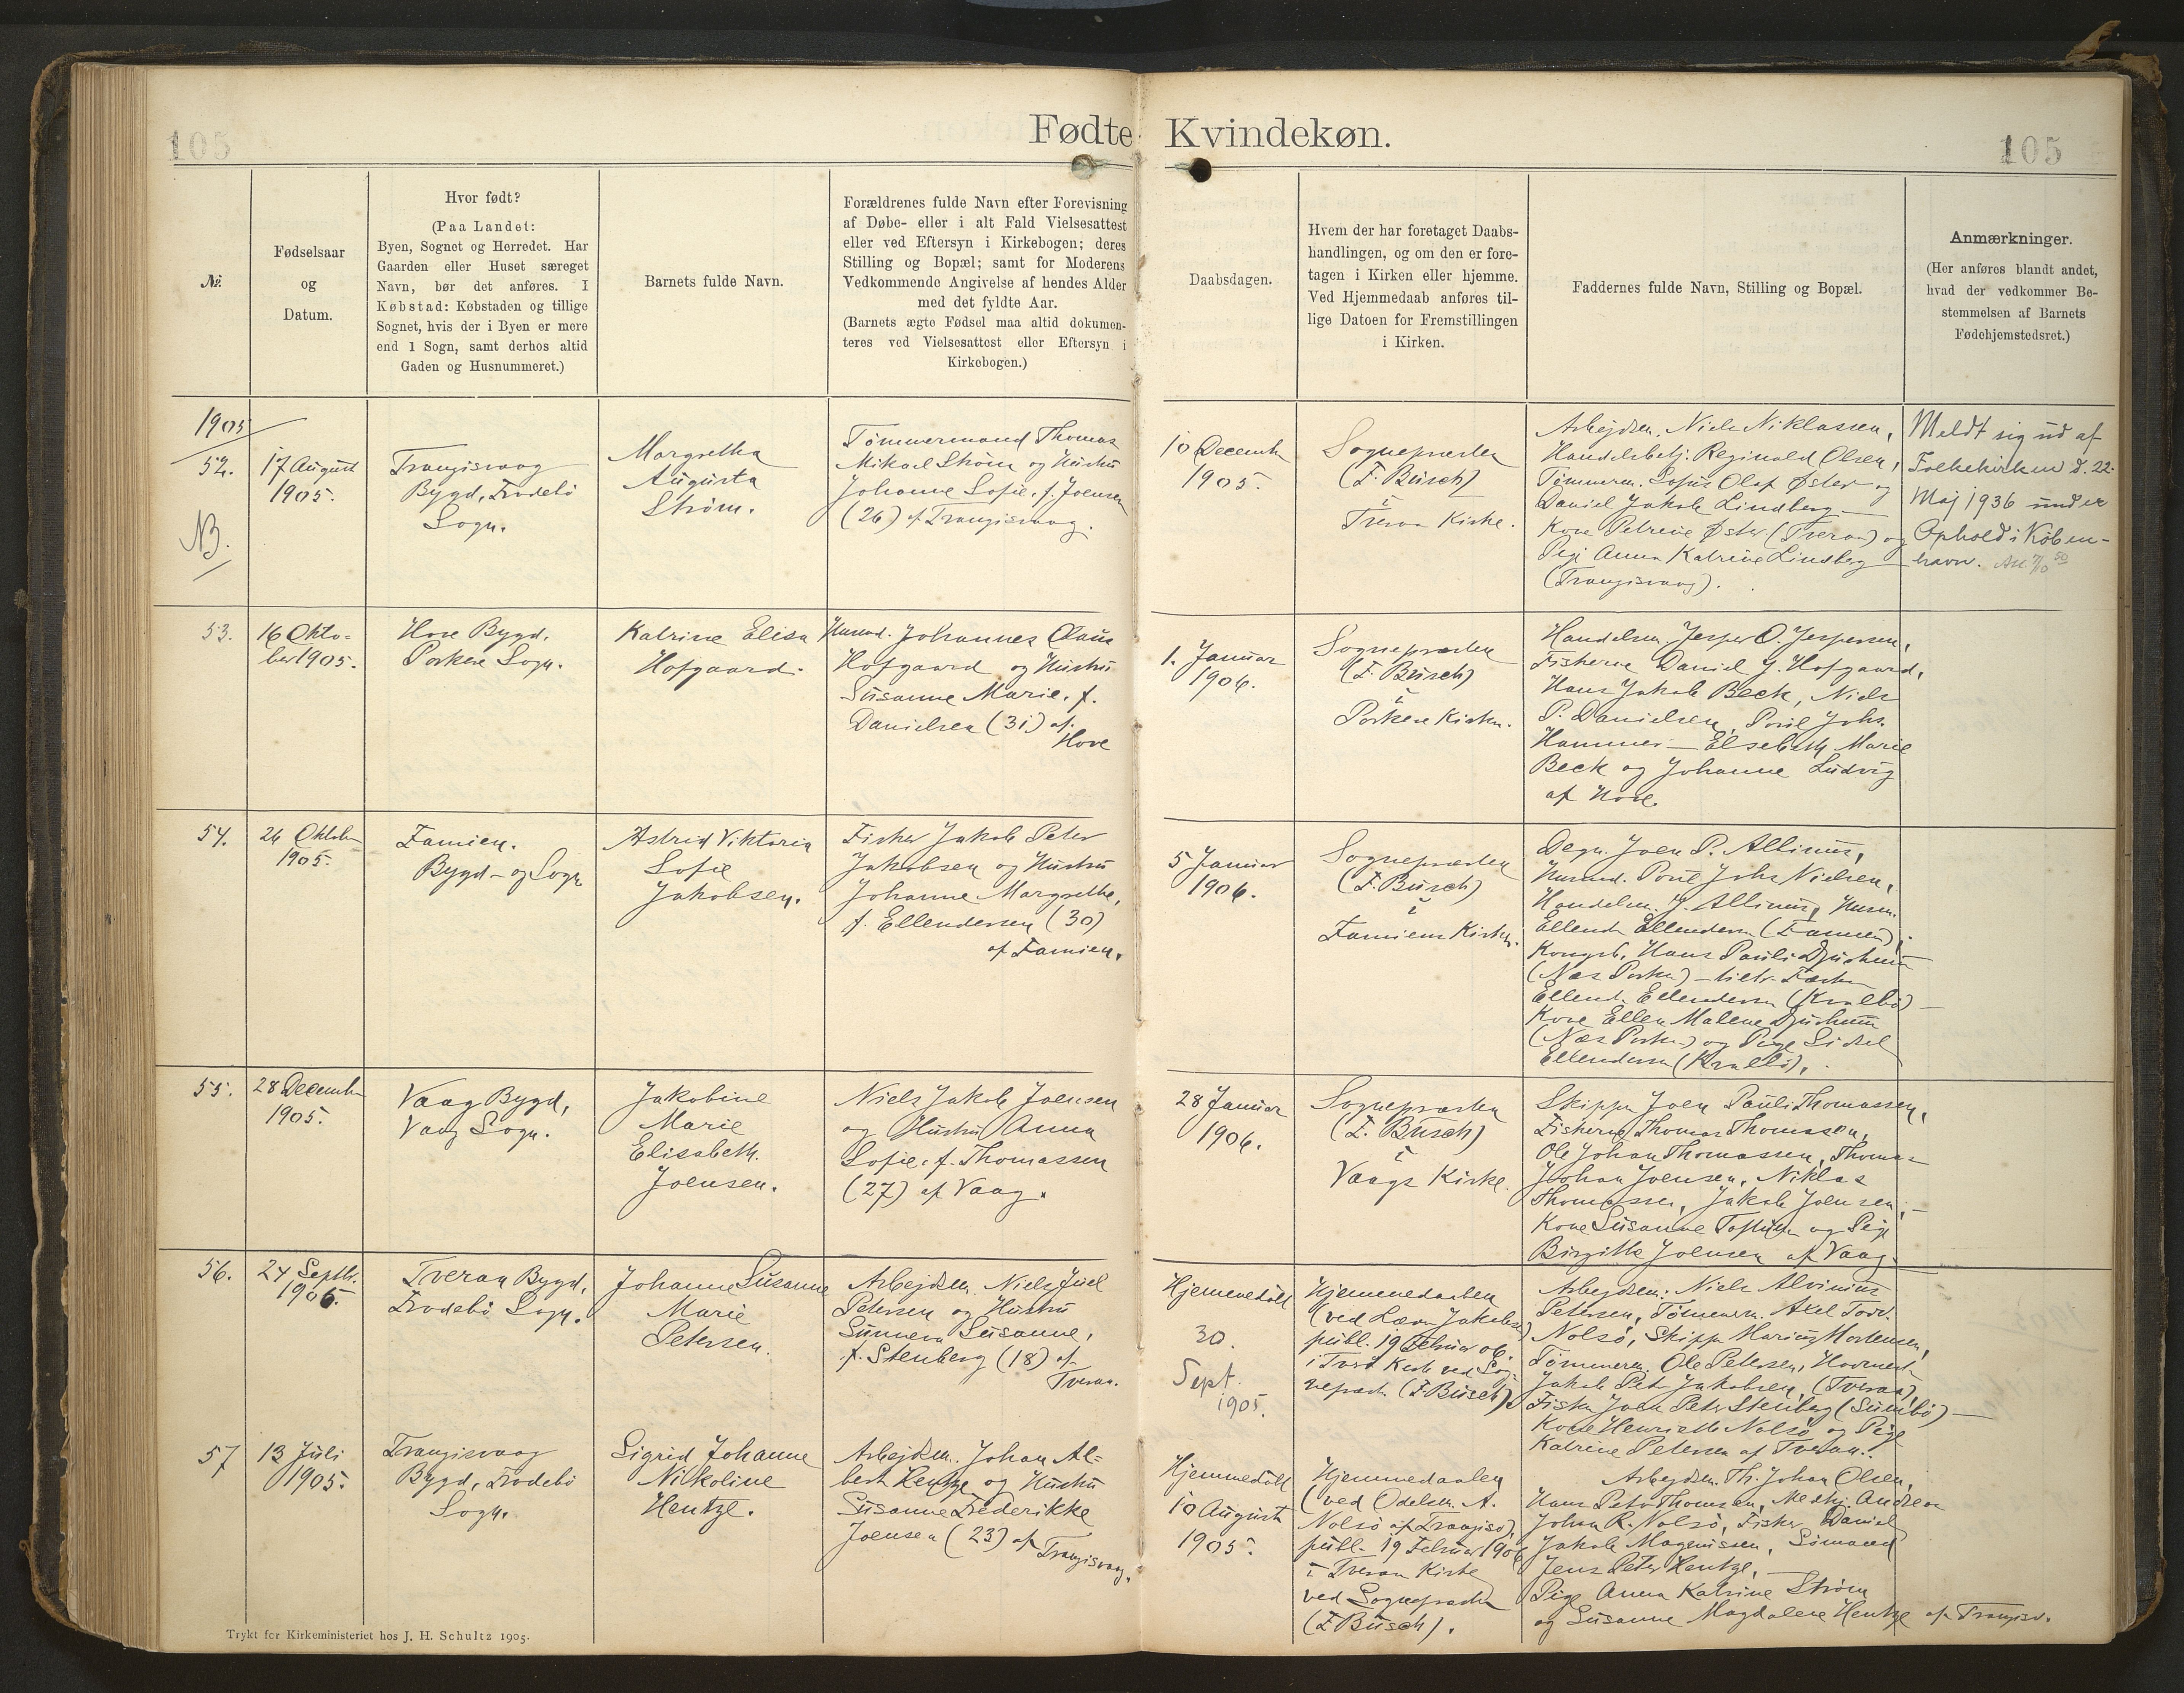 105
Fødte Kvindekøn.
105
№.
Fødselsaar
og
Datum.
Hvor født?
(Paa Landet:
Byen, Sognet og Herredet. Har
Gaarden eller Huset særeget
Navn, bør det anføres. I
Købstad: Købstaden og tillige
Sognet, hvis der i Byen er mere
end 1 Sogn, samt derhos altid
Gaden og Husnummeret.)
Barnets fulde Navn.
Forældrenes fulde Navn efter Forevisning
af Døbe- eller i alt Fald Vielsesattest
eller ved Eftersyn i Kirkebogen; deres
Stilling og Bopæl; samt for Moderens
Vedkommende Angivelse af hendes Alder
med det fyldte Aar.
(Barnets ægte Fødsel maa altid dokumen-
teres ved Vielsesattest eller Eftersyn i
Kirkebogen.)
Daabsdagen.
Hvem der har foretaget Daabs-
handlingen, og om den er fore-
tagen i Kirken eller hjemme.
Ved Hjemmedaab anføres til-
lige Datoen for Fremstillingen
i Kirken.
Faddernes fulde Navn, Stilling og Bopæl.
Anmærkninger.
(Her anføres blandt andet,
hvad der vedkommer Be-
stemmelsen af Barnets
Fødehjemstedsret.)
1905
52.
NB.
17 August
1905.
Trangisvaag
Bygd, Frodebö
Sogn.
Margretha
Augusta
Strøm.
Tømmermand Thomas
Mikael Strøm og Hustru
Johanne Sofie, f. Joensen
(26) af Trangisvaag.
10 December
1905.
Sognepræsten
(F. Busch)
i
Tveraa Kirke.
Arbejdsm. Niels Niklassen,
Handelsbetj. Reginald Olsen,
Tømmerm. Sofus Olaf Øster og
Daniel Jakob Lindberg —
Kone Petrine Øster (Tveraa) og
Pige Anna Katrine Lindberg
(Trangisvaag).
Meldt sig ud af
Folkekirken d. 22.
Maj 1936 under
Ophold i Køben-
havn.
53.
16 Okto-
ber 1905.
Hove Bygd,
Porkere Sogn.
Katrine Elisa
Hofgaard.
Husmd. Johannes Claus
Hofgaard og Hustru
Susanne Marie, f.
Danielsen (31) af
Hove
1. Januar
1906.
Sognepræsten
(F. Busch)
i
Porkere Kirke.
Handelsm. Jesper O. Jespersen,
Fiskerne Daniel J. Hofgaard,
Hans Jakob Beck, Niels
P. Danielsen, Poul Johs.
Hammer — Elsebeth Marie
Beck og Johanne Ludvig
af Hove.
54.
26 Oktober
1905.
Famien.
Bygd- og Sogn
Astrid Viktoria
Sofie
Jakobsen.
Fisker Jakob Peter
Jakobsen og Hustru
Johanne Margrethe,
f. Ellendersen (30)
af Famien.
5 Januar
1906.
Sognepræsten
(F. Busch)
i
Famiens Kirke.
Degn. Joen P. Allinus,
Husmd. Poul Johs Nielsen,
Handelsm. J. Allinus, Husm.
Ellend. Ellendersen (Famien),
Kongsb. Hans Pauli Djurhuus
(Næs Porkere) —
Ellend. Ellendersen
Kone Ellen Malene Djurhuus
(Næs Porkere) og Pige Sidsel
Ellendersen
55.
28 December
1905.
Vaag Bygd,
Vaag Sogn.
Jakobine
Marie
Elisabeth
Joensen.
Niels Jakob Joensen
og Hustru Anna
Sofie, f. Thomassen
(27) af Vaag.
28 Januar
1906.
Sognepræsten
(F. Busch)
i
Vaags Kirke.
Skipper Joen Pauli Thomassen,
Fiskerne Thomas Thomassen,
Ole Johan Thomassen, Thomas
Johan Joensen, Niklas
Thomassen, Jakob Joensen, —
Kone Susanne og Pige
Birgitte Joensen af Vaag.
56.
24 Septbr.
1905.
Tveraa Bygd,
Frodebö Sogn.
Johanne Susanne
Marie
Petersen.
Arbejdsm. Niels Juel
Petersen og Hustru
Sunneva Susanne,
f. Stenberg (18) af
Tveraa.
Hjemmedöbt
30.
Sept.
1905.
Hjemmedaaben
(ved Jakobsen)
publ. 19 Februar 06.
i Tver Kirke ved Sog-
nepræst. (F. Busch).
Arbejdsm: Niels Alvinius
Petersen, Tömmerm. Axel
Nolsö, Skipper Marius Mortensen,
Tömmerm. Ole Petersen,
Jakob Peter Jakobsen, (Tveraa),
Fisker Joen Peter Stenberg (Sumbö) —
Kone Henriette Nolsö og Pige
Katrine Petersen af Tveraa.
57
13 Juli
1905.
Trangisvaag
Bygd, Frodebö
Sogn.
Sigrid Johanne
Nikoline
Hentze.
Arbejdsm. Johan Al-
bert Hentze og Hustru
Susanne Frederikke
Joensen (23) af Trangisvaag.
Hjemmedöbt
10 August
1905.
Hjemmedaaben
(ved Odelsm. A.
Nolsö af Trangisv),
publ. 19 Februar 1906
i Tveraa Kirke
ved Sognepræsten
(F Busch).
Arbejdsm. Th. Johan Olsen,
Hans Peter Thomsen, Andreas
Johan R. Nolsö, Fisker Daniel
Jakob Magnussen, Sömand
Jens Peter Hentze, —
Pige Anna Katrine Ström
og Susanne Magdalene Hentze af Trangisv.
Trykt for Kirkeministeriet hos J. H. Schultz 1905.